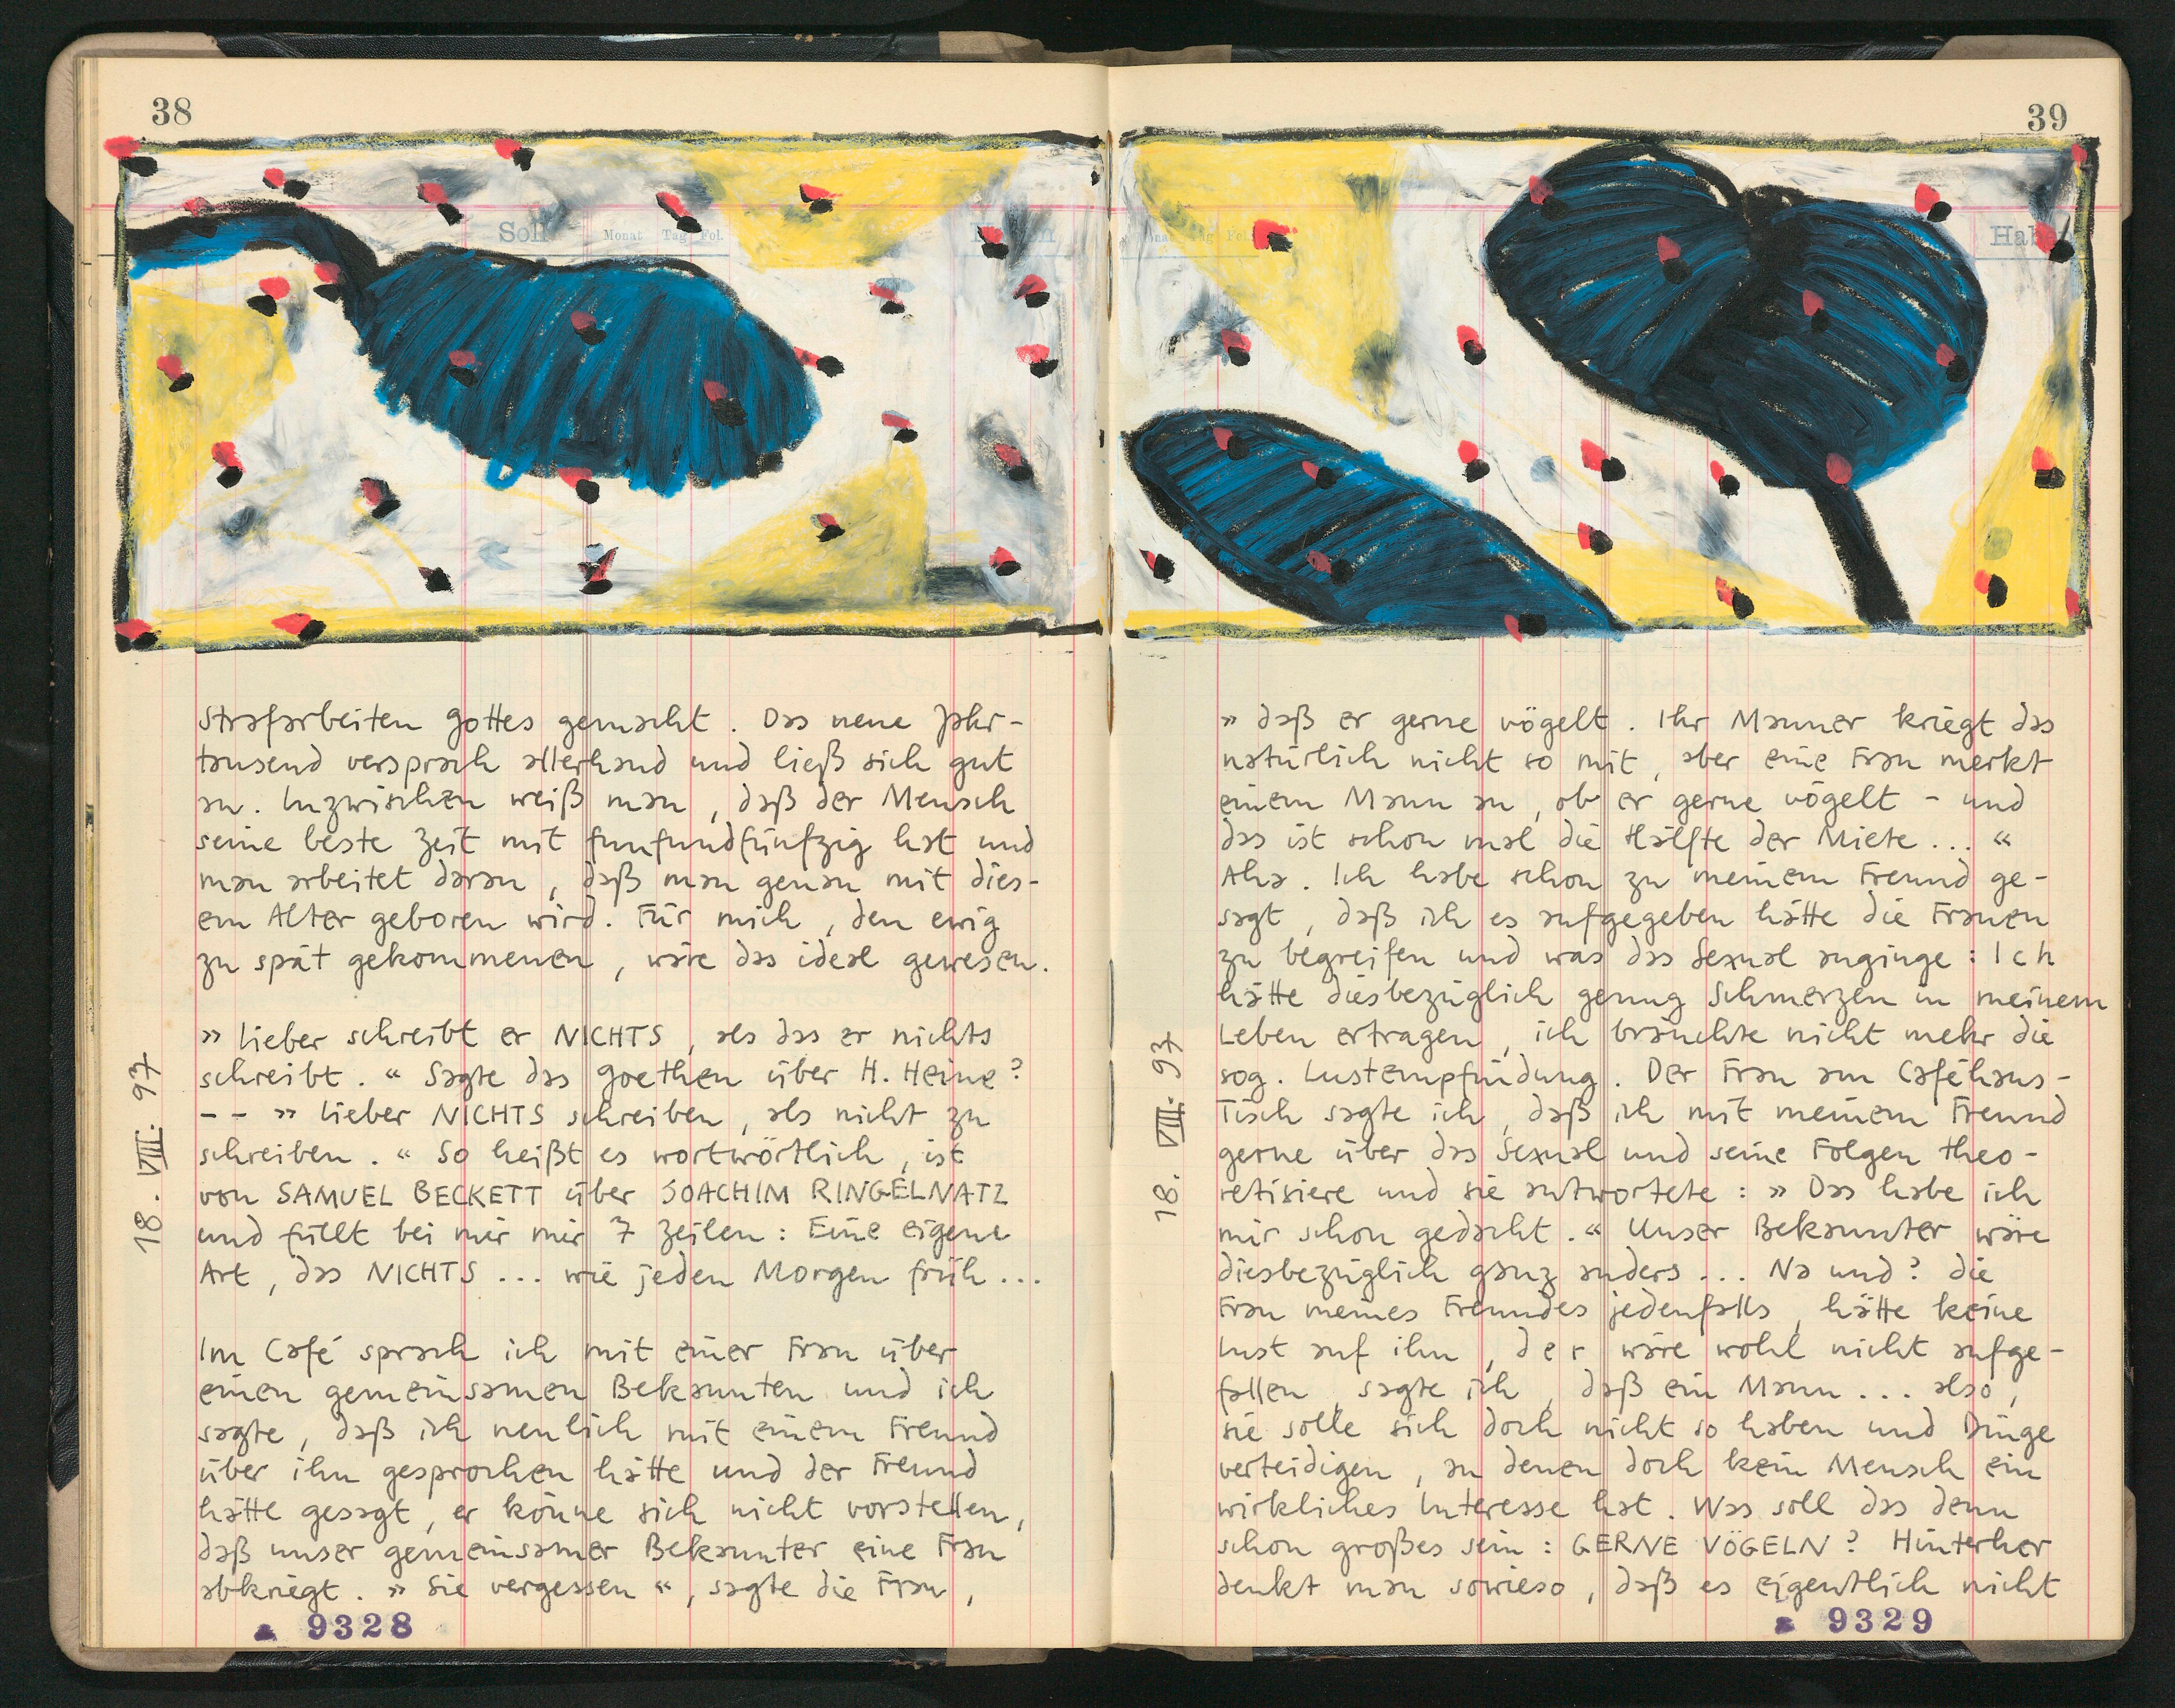 38
Soll
Monat Tag Fol.
Strafarbeiten Gottes gemacht. Das neue Jahr-
tausend versprach allerhand und ließ sich gut
an. Inzwischen weiß man, daß der Mensch
seine beste Zeit mit fünfundfünfzig hat und
man arbeitet daran, daß man genau mit dies-
em Alter geboren wird. Für mich, den ewig
zu spät gekommenen, wäre das ideal gewesen.
» Lieber schreibt er NICHTS, als das er nichts
schreibt. « Sagte das Goethen über H. Heine?
-- » Lieber NICHTS schreiben, als nicht zu
schreiben. « So heißt es wortwörtlich, ist
von SAMUEL BECKETT über JOACHIM RINGELNATZ
und füllt bei mir mir 7 Zeilen: Eine eigene
Art, das NICHTS ... wie jeden Morgen früh ...
Im Café sprach ich mit einer Frau über
einen gemeinsamen Bekannten und ich
sagte, daß ich neulich mit einem Freund
über ihn gesprochen hätte und der Freund
hätte gesagt, er könne sich nicht vorstellen,
daß unser gemeinsamer Bekannter eine Frau
abkriegt. » Sie vergessen «, sagte die Frau,
18. VIII. 97
9328
39
Haben
» daß er gerne vögelt. Ihr Männer kriegt das
natürlich nicht so mit, aber eine Frau merkt
einem Mann an, ob er gerne vögelt - und
das ist schon mal die Hälfte der Miete ... «
Aha. Ich habe schon zu meinem Freund ge-
sagt, daß ich es aufgegeben hätte die Frauen
zu begreifen und was das Sexual anginge: Ich
hätte diesbezüglich genug Schmerzen in meinem
Leben ertragen, ich bräuchte nicht mehr die
sog. Lustempfindung. Der Frau am Caféhaus-
Tisch sagte ich, daß ich mit meinem Freund
gerne über das Sexual und seine Folgen theo-
retisiere und sie antwortete: » Das habe ich
mir schon gedacht. « Unser Bekannter wäre
diesbezüglich ganz anders ... Na und? Die
Frau meines Freundes jedenfalls, hätte keine
Lust auf ihn, der wäre wohl nicht aufge-
fallen, sagte ich, daß ein Mann ... also,
sie solle sich doch nicht so haben und Dinge
verteidigen, an denen doch kein Mensch ein
wirkliches Interesse hat. Was soll das denn
schon großes sein: GERNE VÖGELN? Hinterher
denkt man sowieso, daß es eigentlich nicht
18. VIII. 97
9329